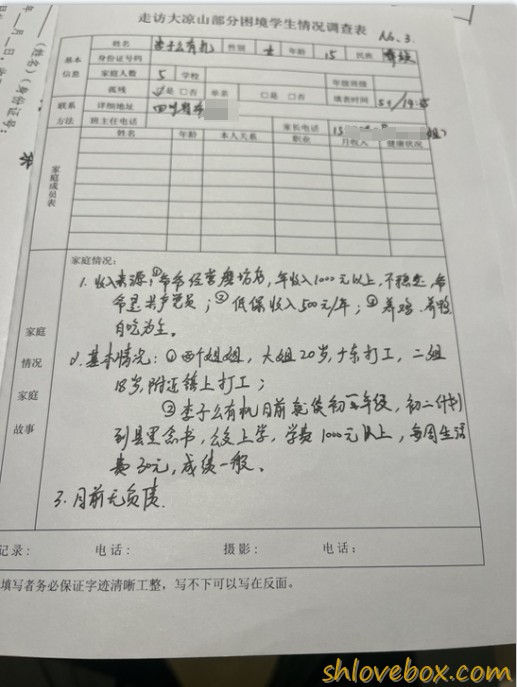 走访大凉山部分困境学生情况调查表 No.3.
姓名 李子么有机 性别 女 年龄 15 民族
基本 身份证号码
信息 家庭人数 5 学校 年级班级
孤残 是 □否 单亲 □是 □否 填表时间
联系 详细地址 四川省
方法 班主任电话 家长电话 13
姓名 年龄 本人关系 职业 月收入 健康状况
家庭成员表
家庭情况:
1. 收入来源:①爷爷经营磨坊房,年收入1000元以上,不稳定,爷
爷是共产党员;②低保收入500元/年;③养鸡、养鸭
自吃为主。
2. 基本情况:①两个姐姐,大姐20岁,广东打工,二姐
18岁,附近镇上打工;
②李子么有机目前就读初一年级,初二计划
到县里念书,去交上学,学费1000元以上,每周生活
费30元,成绩一般。
3. 目前无负债.
家庭
情况
家庭
故事
记录: 电话: 摄影: 电话:
填写者务必保证字迹清晰工整,写不下可以写在反面。
年__月__日
(姓名)(身份证号:
shlovebox.com